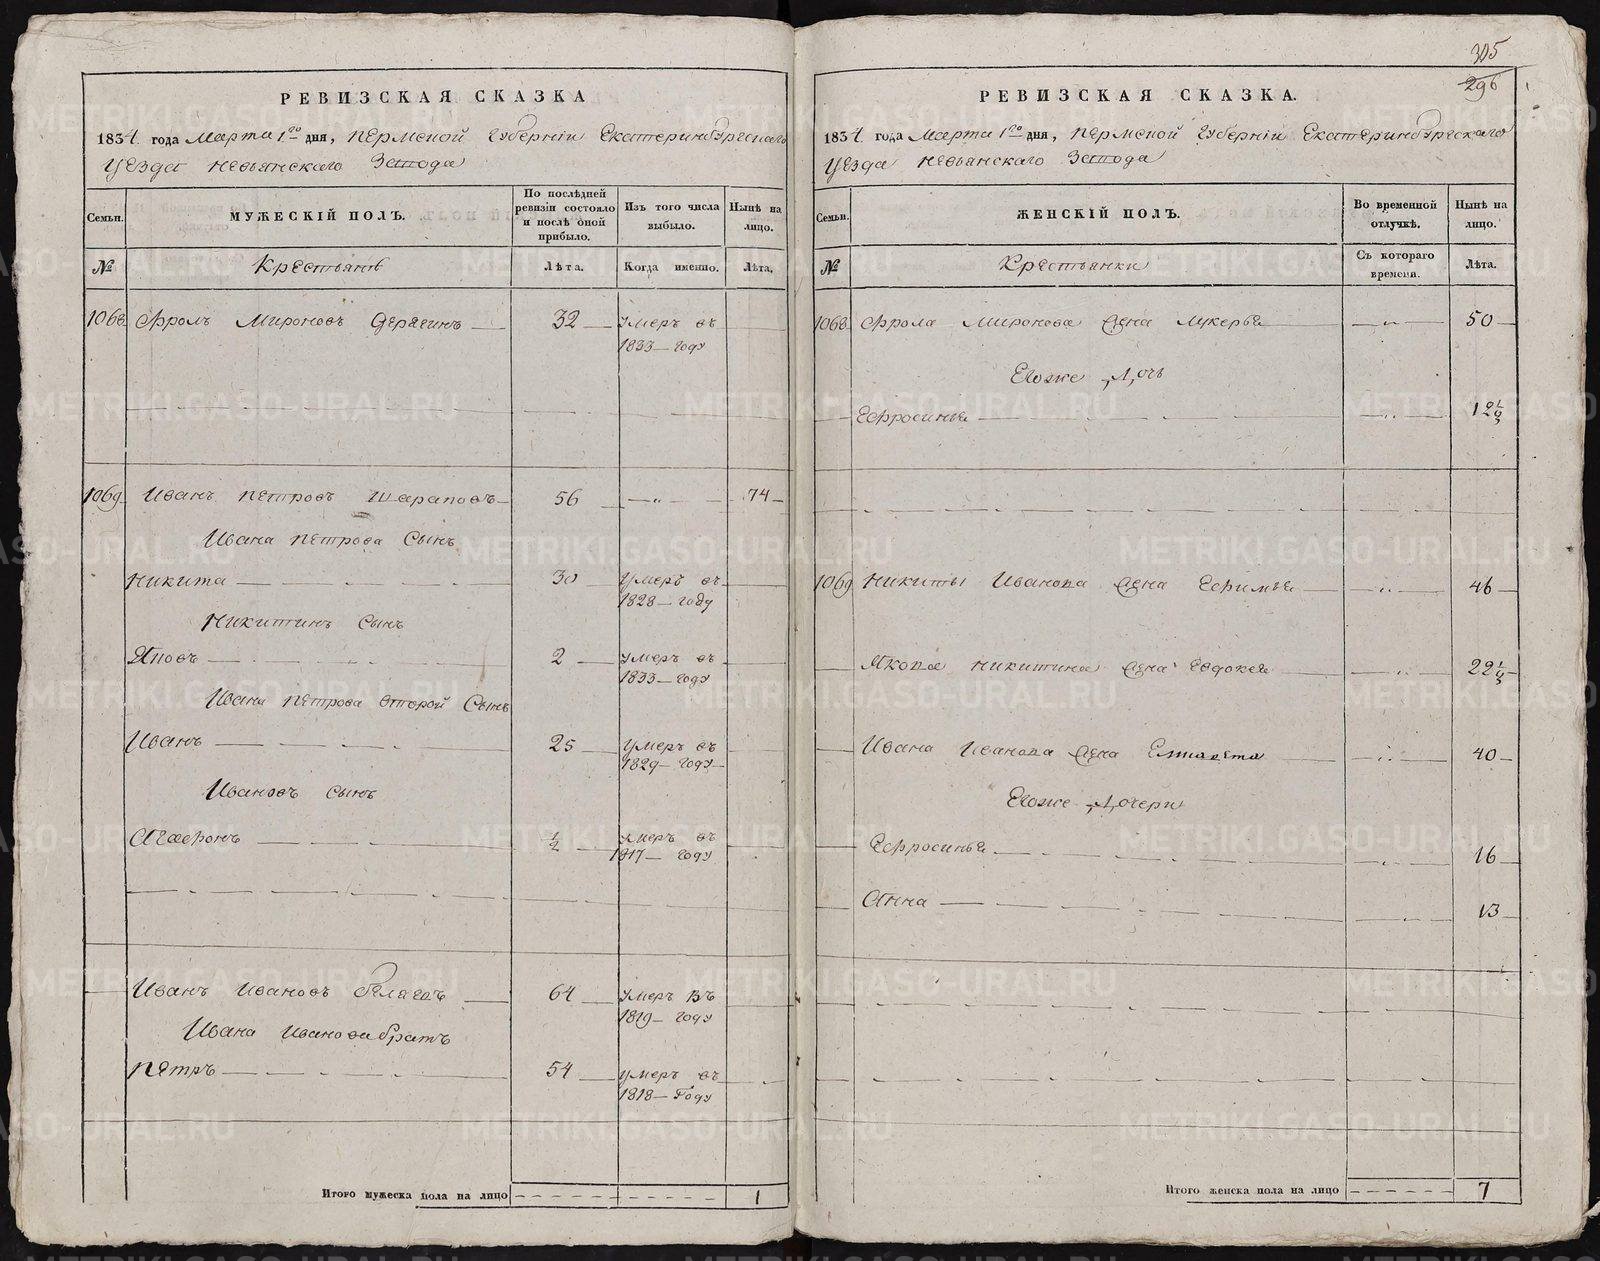 305
296
РЕВИЗСКАЯ СКАЗКА
1834 года Марта 1го дня, Пермской Губернiи Екатеринбургскаго
Уезда Невьянскаго Завода
Семьи.
МУЖЕСКIЙ ПОЛЪ.
По послѣдней ревизiи состояло и послѣ оной прибыло.
Изъ того числа выбыло.
Нынѣ на лицо.
№
Крестьяне
Лѣта.
Когда именно.
Лѣта.
1068 Фролъ Мироновъ 32 умеръ въ
1833 году
1069 Иванъ Петровъ Шараповъ 56 — „ — 74
Ивана Петрова Сынъ
Никита 30 умеръ въ
1828 году
Никитинъ Сынъ
Яковъ 2 умеръ въ
1833 году
Ивана Петрова второй Сынъ
Иванъ 25 умеръ въ
1829 году
Ивановъ сынъ
Агафонъ ½ умеръ въ
1817 году
Иванъ Ивановъ 64 умеръ въ
1819 году
Ивана Иванова братъ
Петръ 54 умеръ въ
1818 Году
Итого мужеска пола на лицо 1
РЕВИЗСКАЯ СКАЗКА.
1834 года Марта 1го дня, Пермской Губернiи Екатеринбургскаго
Уезда Невьянскаго Завода
Семьи.
ЖЕНСКIЙ ПОЛЪ.
Во временной отлучкѣ.
Нынѣ на лицо.
№
Крестьянки
Съ котораго времени.
Лѣта.
1068 Фрола Миронова жена Лукерья — „ — 50
Егоже Дочь
Ефросинья — „ — 12½
1069 Никиты Иванова жена Ефимья — „ — 46
Якова Никитина жена Евдокея — „ — 22½
Ивана Иванова жена Елизавета — „ — 40
Егоже Дочери
Ефросинья — „ — 16
Анна — „ — 13
Итого женска пола на лицо 7
METRIKI.GASO-URAL.RU